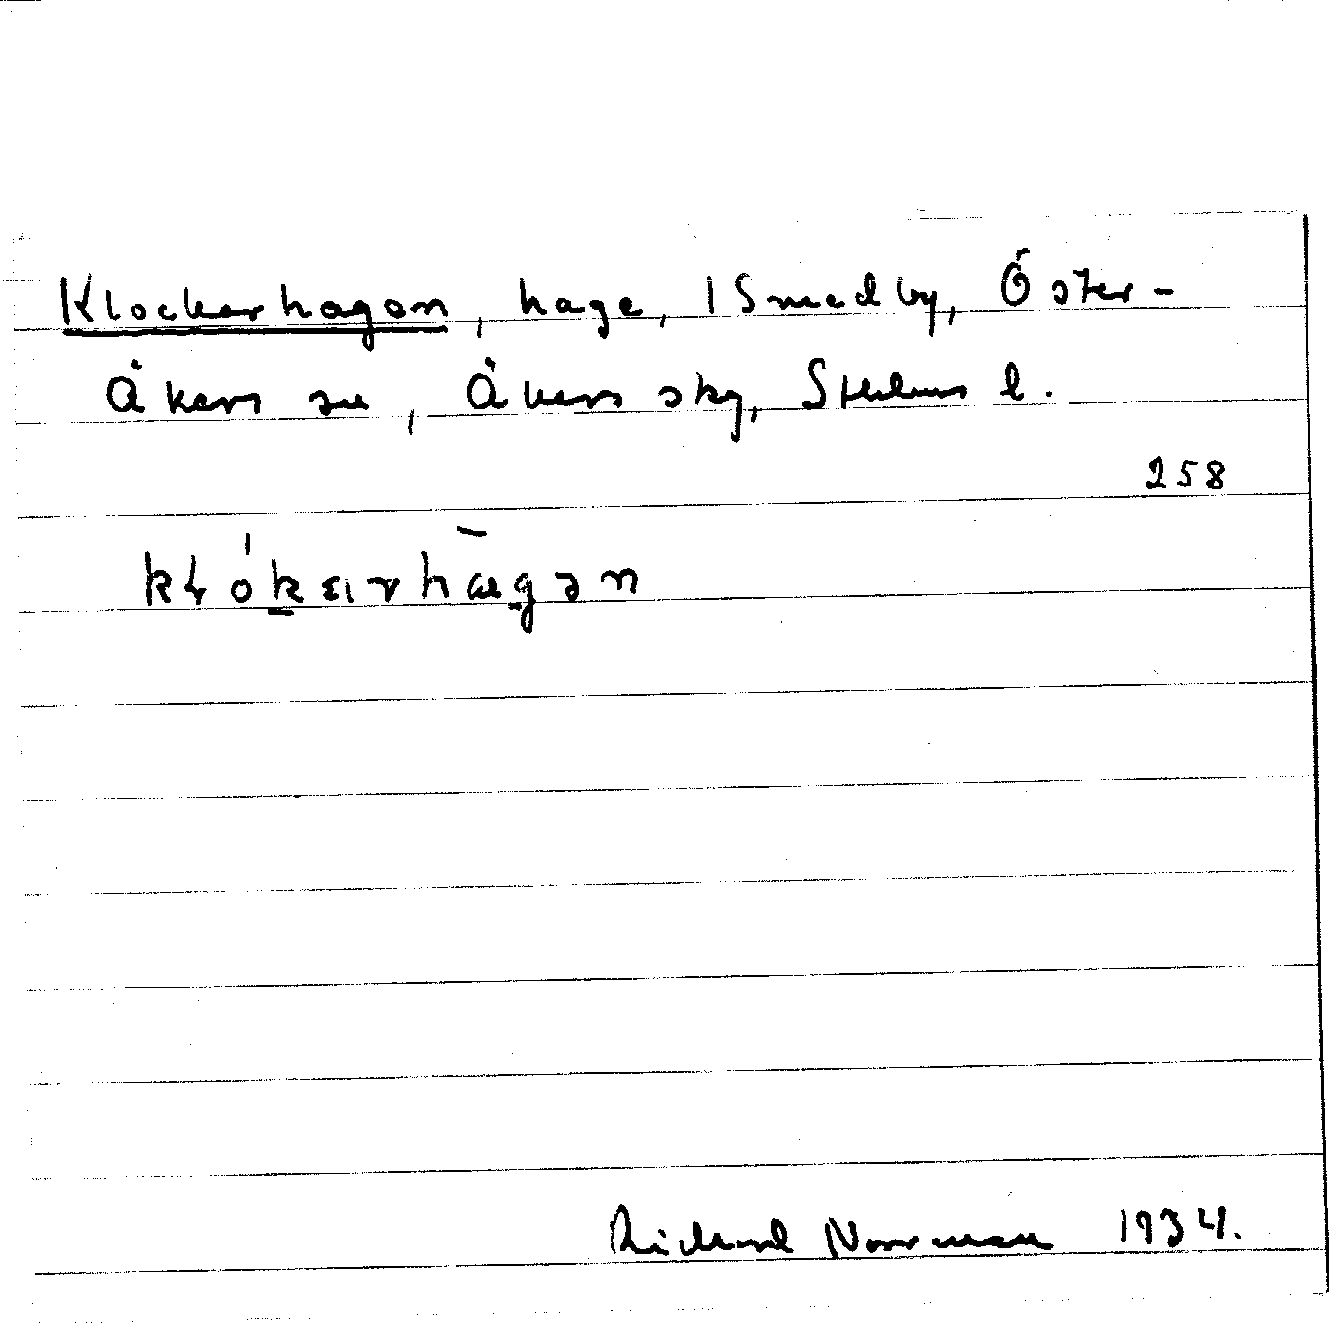 Klockarhagen, hage, 1 Smedby, Öster-
Åkers sn, Åkers skg, Sthlms l.
258
Richard Norrman 1934.